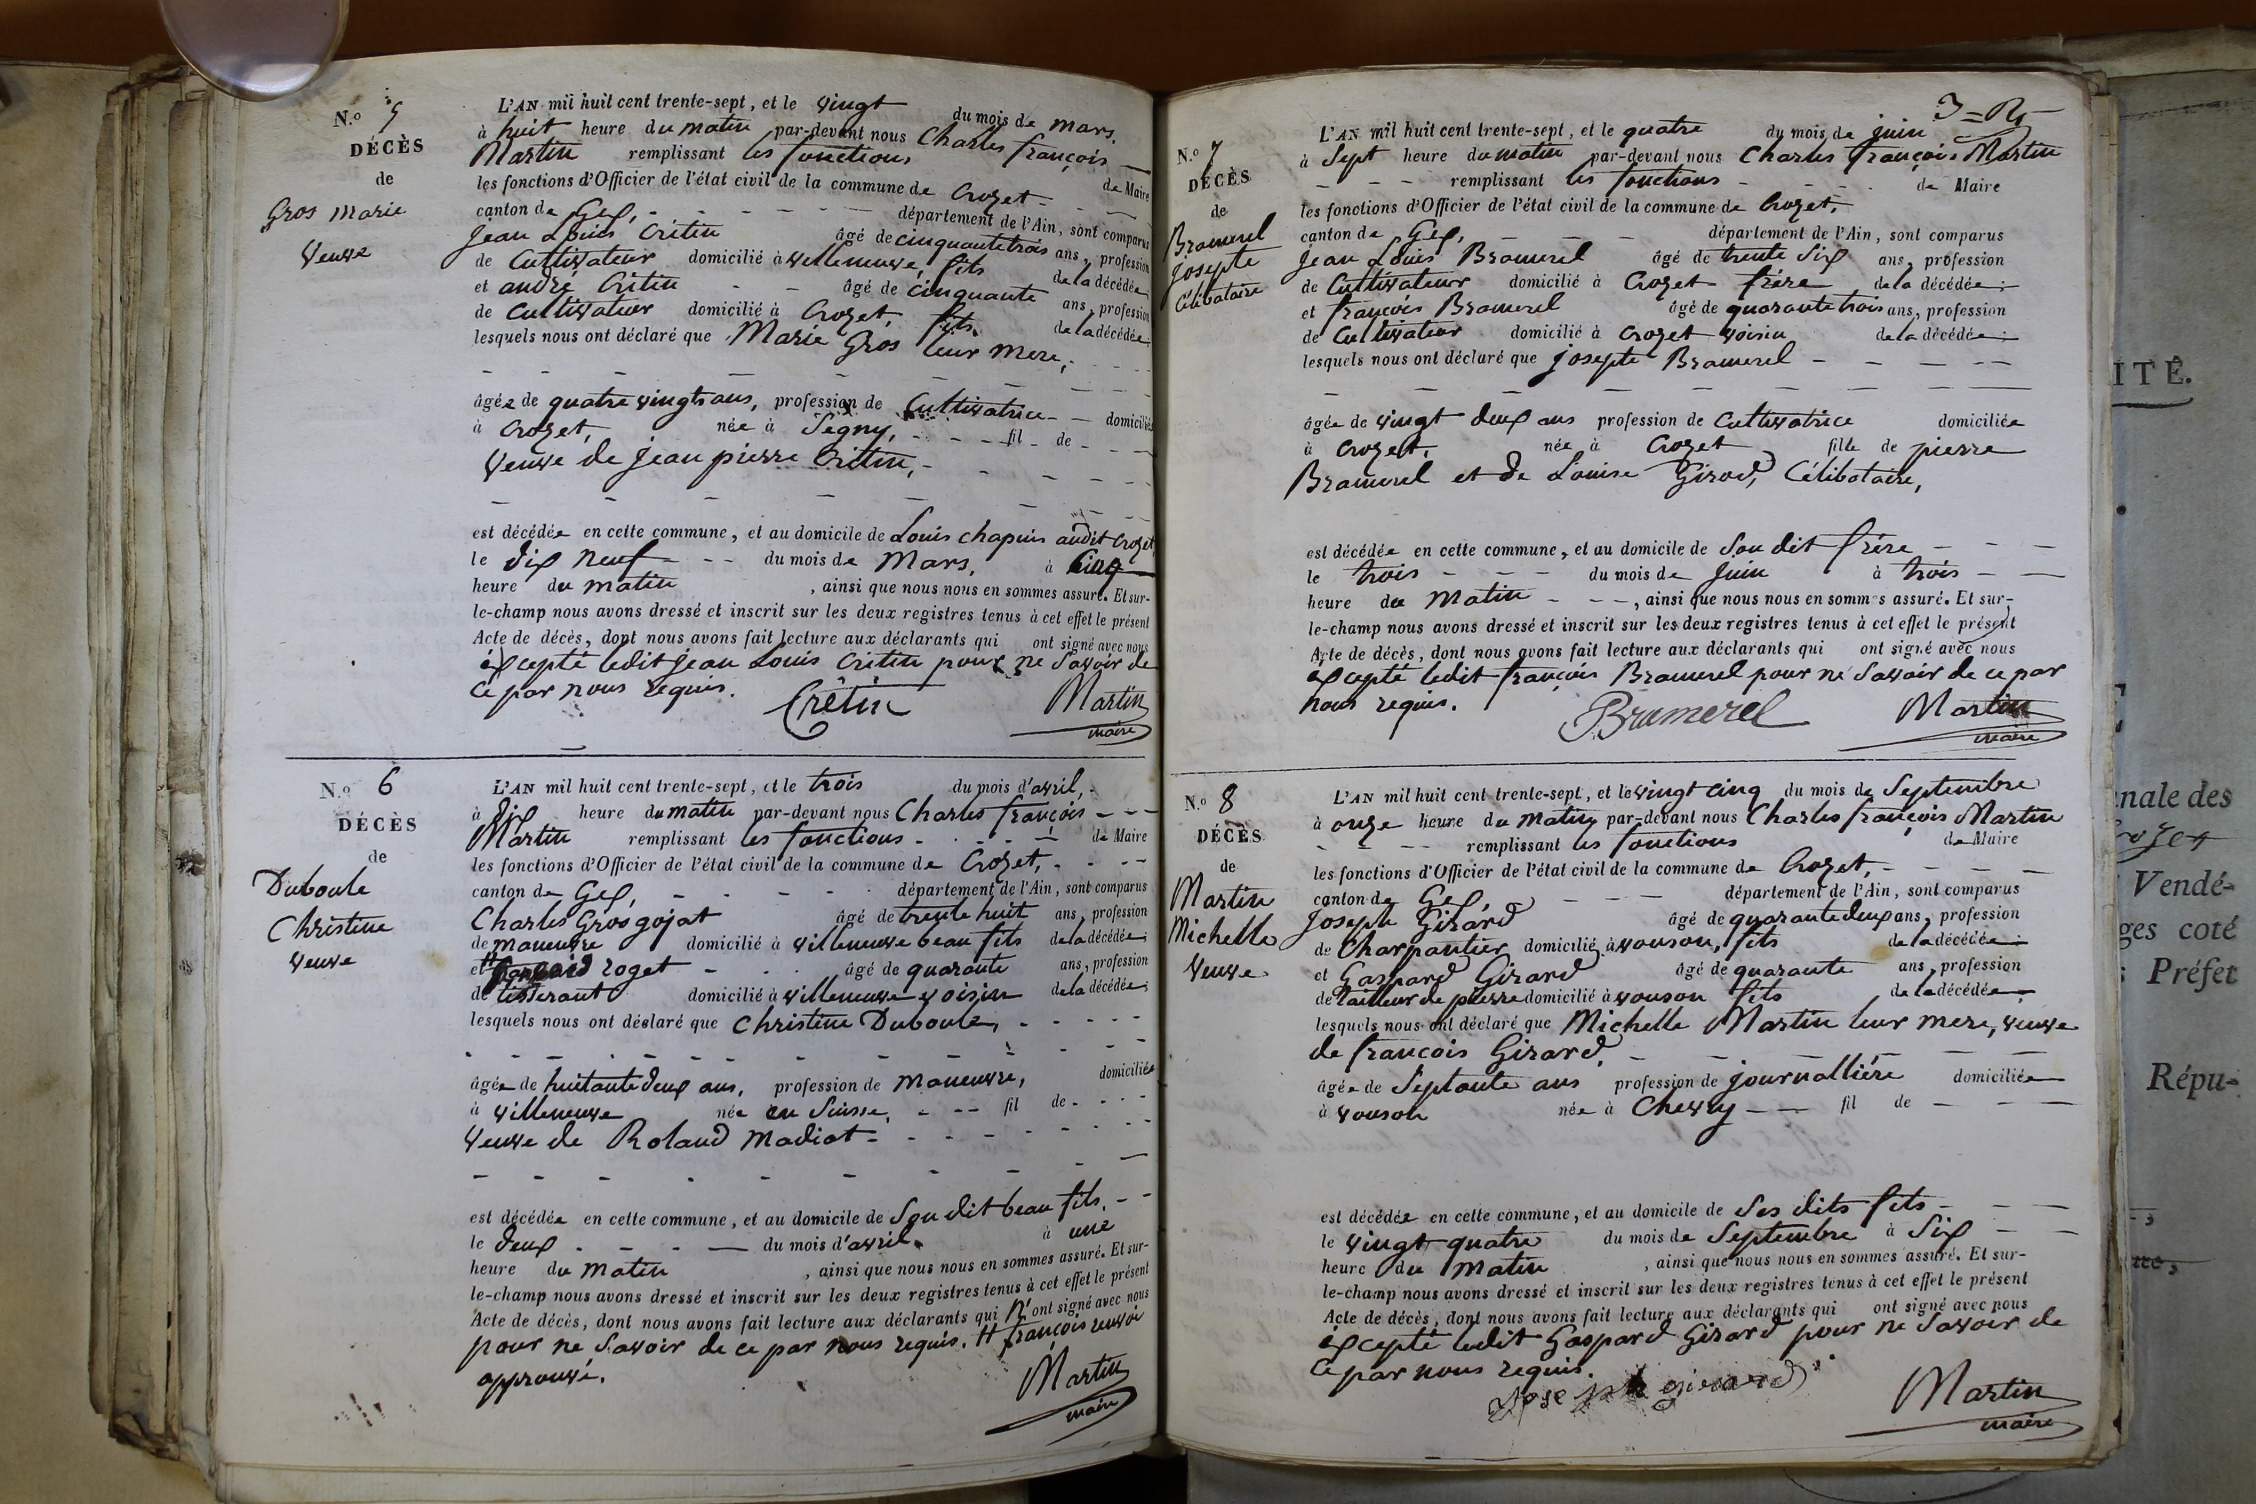 N.° 5
DÉCÈS
de
Gros Marie
Veuve
L'AN mil huit cent trente-sept, et le vingt du mois de mars.
à huit heure du matin par-devant nous Charles françois
Martin remplissant les fonctions de Maire
les fonctions d'Officier de l'état civil de la commune de Crozet
canton de Gex, département de l'Ain, sont comparus
Jean Louis Critin âgé de cinquante trois ans, profession
de Cultivateur domicilié à Villeneuve, fils de la décédée
et andré Critin âgé de cinquante ans, profession
de Cultivateur domicilié à Crozet, fils de la décédée;
lesquels nous ont déclaré que Marie Gros leur mere,
âgée de quatre vingts ans, profession de Cultivatrice domiciliée
à Crozet, née à Segny, fil de
Veuve de Jean pierre Critin,
est décédée en cette commune, et au domicile de Louis chapuis audit Crozet
le dix neuf du mois de Mars, à Cinq
heure du matin, ainsi que nous nous en sommes assuré. Et sur-
le-champ nous avons dressé et inscrit sur les deux registres tenus à cet effet le présent
Acte de décès, dont nous avons fait lecture aux déclarants qui ont signé avec nous
excepté ledit Jean Louis Critin pour ne Savoir de
Ce par nous requis. Crêtin Martin
maire
N.° 6
DÉCÈS
de
Duboule
Christine
Veuve
L'AN mil huit cent trente-sept, et le trois du mois d'avril,
à dix heure du matin par-devant nous Charles françois
Martin remplissant les fonctions de Maire
les fonctions d'Officier de l'état civil de la commune de Crozet,
canton de Gex, département de l'Ain, sont comparus
Charles Gros gojat âgé de trente huit ans, profession
de maneuvre domicilié à Villeneuve beau fils de la décédée;
et roget âgé de quarante ans, profession
de tisserant domicilié à Villeneuve voisin de la décédée;
lesquels nous ont déclaré que Christine Duboule,
âgée de huitante deux ans, profession de maneuvre, domiciliée
à Villeneuve née en Suisse, fil de
Veuve de Roland Madiot
est décédée en cette commune, et au domicile de Son dit beau fils,
le deux du mois d'avril, à une
heure du matin, ainsi que nous nous en sommes assuré. Et sur-
le-champ nous avons dressé et inscrit sur les deux registres tenus à cet effet le présent
Acte de décès, dont nous avons fait lecture aux déclarants qui N'ont signé avec nous
pour ne Savoir de ce par nous requis. # françois renvoi
approuvé. Martin
maire
N.° 7
DÉCÈS
de
Bramerel
Josepte
Célibataire
L'AN mil huit cent trente-sept, et le quatre du mois de Juin
à Sept heure du matin par-devant nous Charles françois Martin
remplissant les fonctions de Maire
les fonctions d'Officier de l'état civil de la commune de Crozet,
canton de Gex, département de l'Ain, sont comparus
Jean Louis Bramerel âgé de trente Six ans, profession
de Cultivateur domicilié à Crozet frére de la décédée;
et françois Bramerel âgé de quarante trois ans, profession
de Cultivateur domicilié à Crozet voisin de la décédée;
lesquels nous ont déclaré que Josepte Bramerel
âgée de vingt deux ans profession de Cultivatrice domiciliée
à Crozet, née à Crozet fille de pierre
Bramerel et de Louise Girod, Célibataire,
est décédée en cette commune, et au domicile de Son dit frére
le trois du mois de Juin à trois
heure du Matin, ainsi que nous nous en sommes assuré. Et sur-
le-champ nous avons dressé et inscrit sur les deux registres tenus à cet effet le présent
Acte de décès, dont nous avons fait lecture aux déclarants qui ont signé avec nous
excepté ledit françois Bramerel pour ne Savoir de ce par
Nous requis. Bramerel Martin
maire
N.° 8
DÉCÈS
de
Martin
Michelle
Veuve
L'AN mil huit cent trente-sept, et le vingt cinq du mois de Septembre
à onze heure du matin par-devant nous Charles françois Martin
remplissant les fonctions de Maire
les fonctions d'Officier de l'état civil de la commune de Crozet,
canton de Gex, département de l'Ain, sont comparus
Joseph Girard âgé de quarante deux ans, profession
de Charpantier domicilié à vouson, fils de la décédée;
et Gaspard Girard âgé de quarante ans, profession
de tailleur de pierre domicilié à vouson fils de la décédée;
lesquels nous ont déclaré que Michelle Martin leur mere, veuve
de francois Girard,
âgée de Septante ans profession de journalliére domiciliée
à vouson née à Chevry fil de
est décédée en cette commune, et au domicile de Ses dits fils
le vingt quatre du mois de Septembre à Six
heure du Matin, ainsi que nous nous en sommes assuré. Et sur-
le-champ nous avons dressé et inscrit sur les deux registres tenus à cet effet le présent
Acte de décès, dont nous avons fait lecture aux déclarants qui ont signé avec nous
excepté ledit Gaspard Girard pour ne Savoir de
Ce par nous requis.
Joseph girard Martin
maire
ITÉ.
nale des
Vendé-
ges coté
Préfet
Répu-